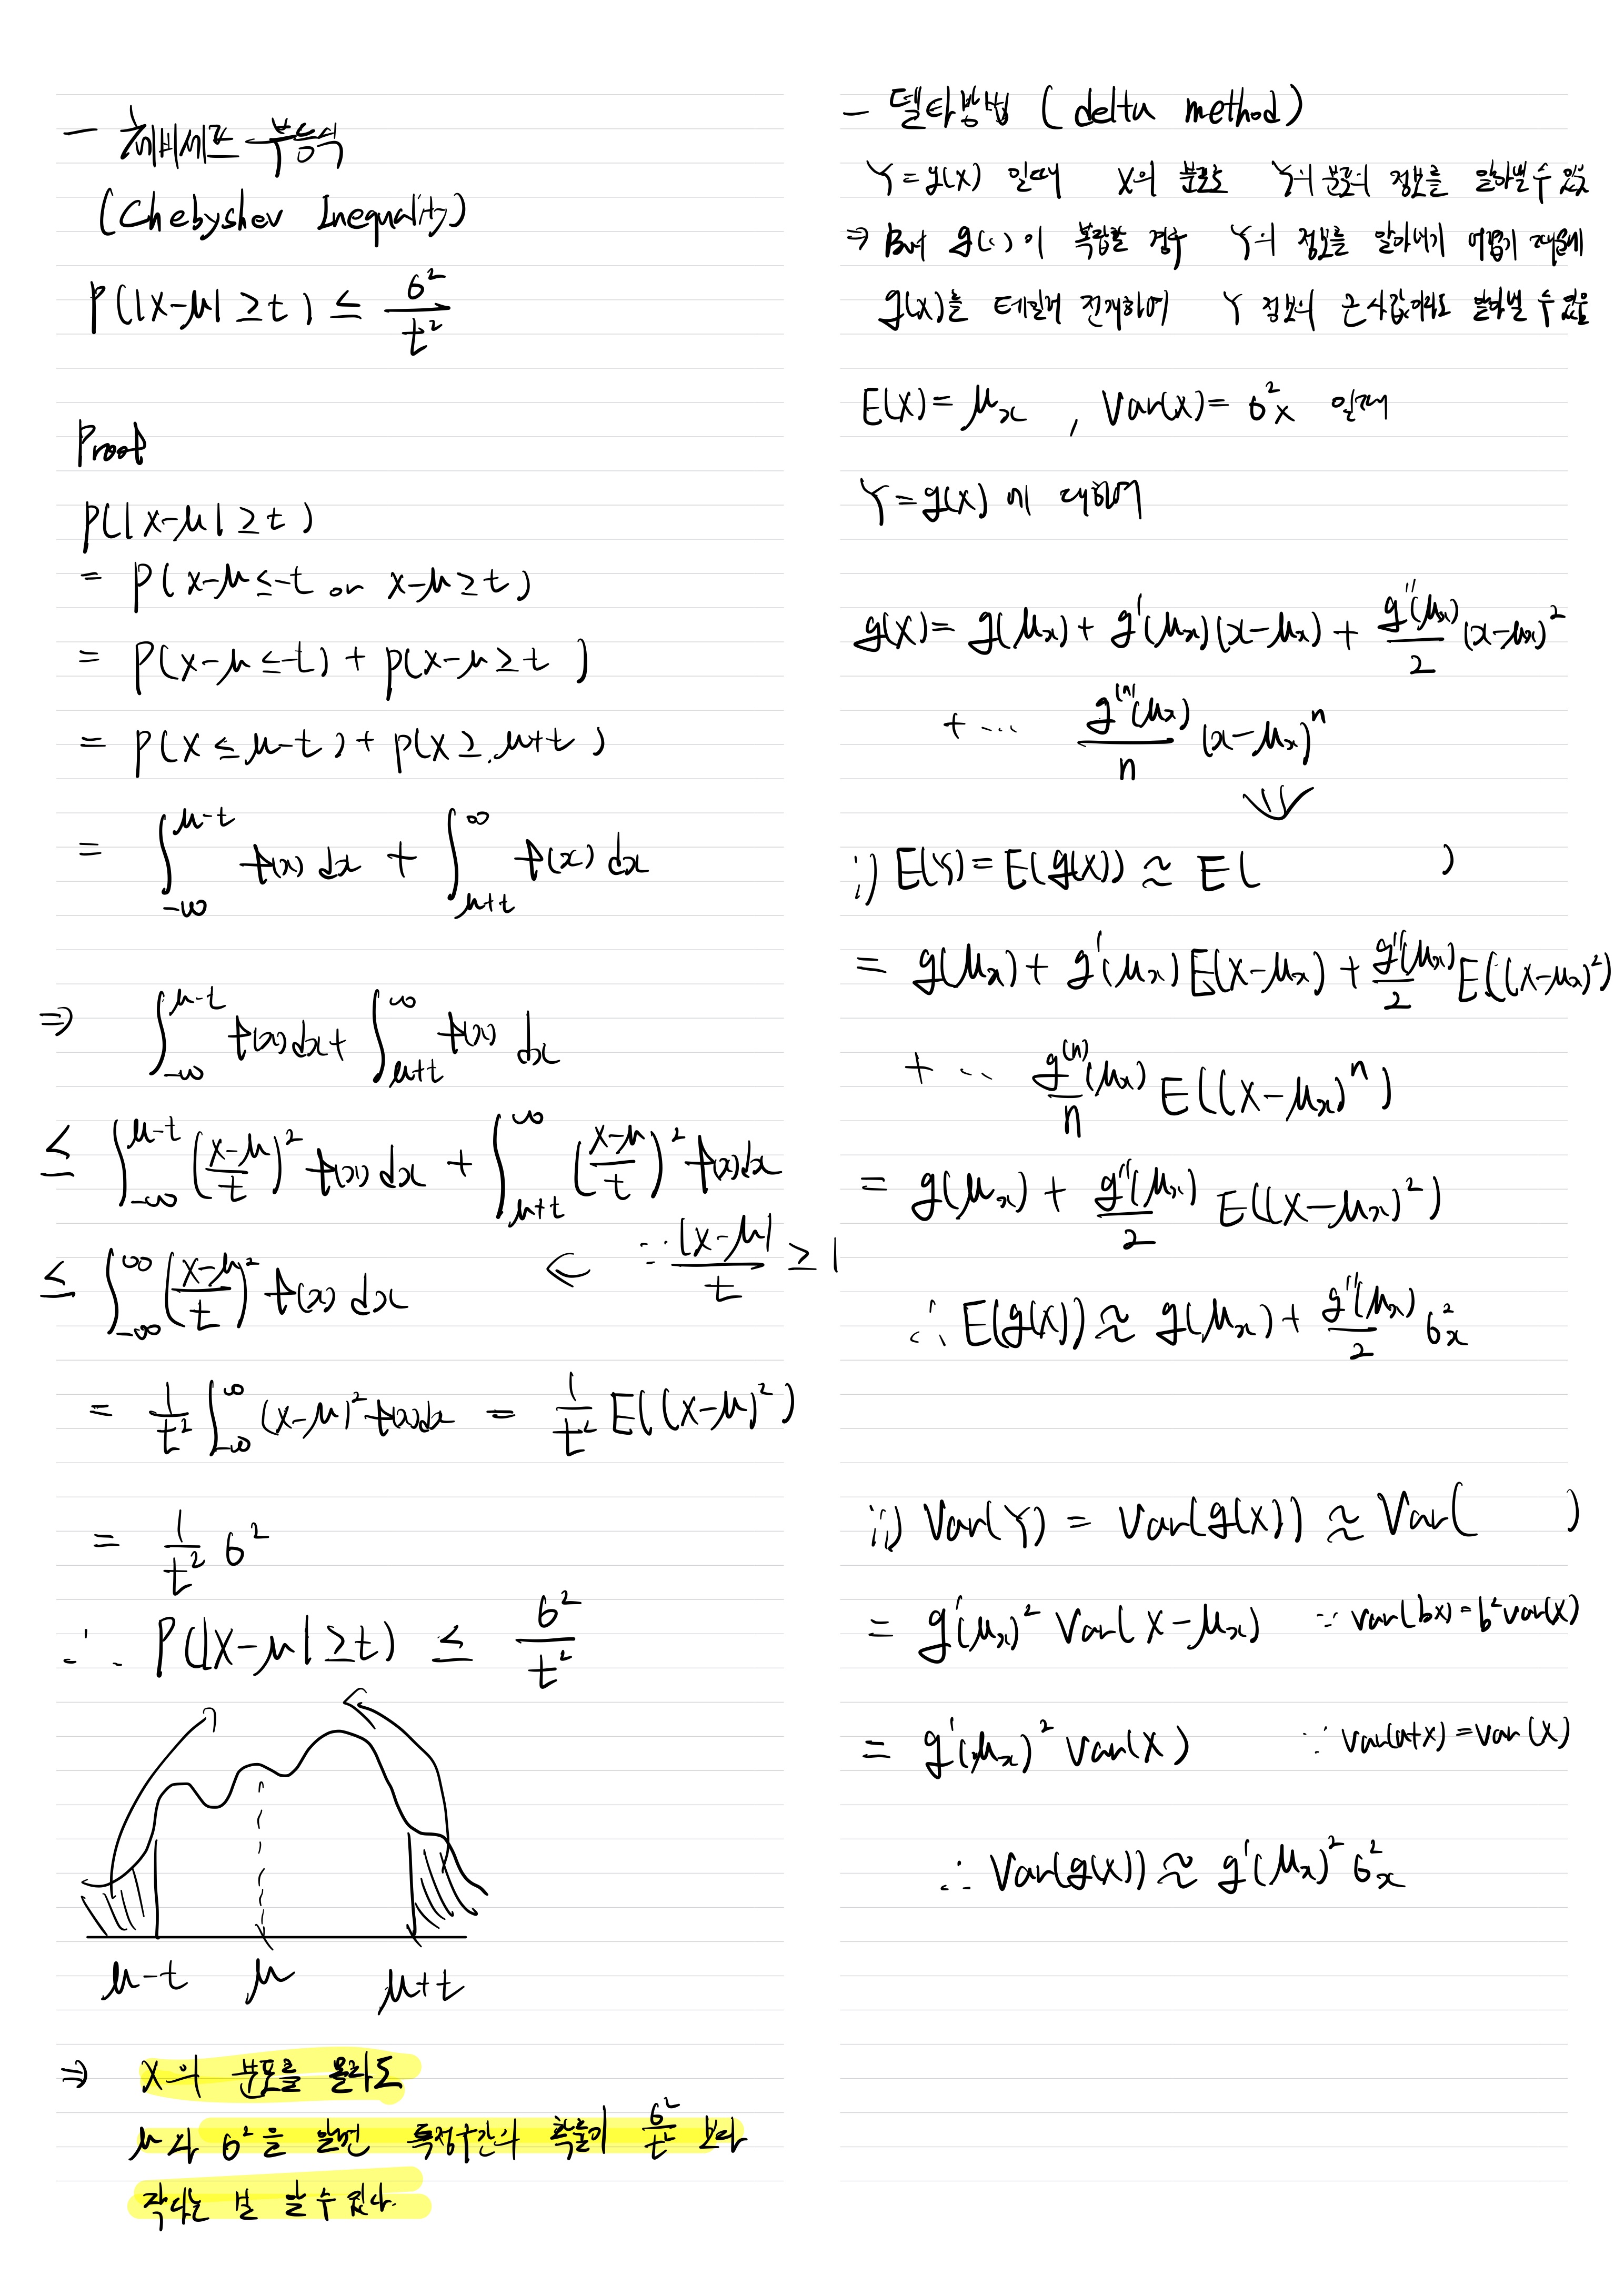 - 체비셰프 부등식
(Chebyshev Inequality)
P(|X-μ| ≥ t) ≤ σ²/t²
Proof
P(|X-μ| ≥ t)
= P(X-μ ≤ -t or X-μ ≥ t)
= P(X-μ ≤ -t) + P(X-μ ≥ t)
= P(X ≤ μ-t) + P(X ≥ μ+t)
= ∫_{-∞}^{μ-t} f(x) dx + ∫_{μ+t}^{∞} f(x) dx
⇒ ∫_{-∞}^{μ-t} f(x) dx + ∫_{μ+t}^{∞} f(x) dx
≤ ∫_{-∞}^{μ-t} ((x-μ)/t)² f(x) dx + ∫_{μ+t}^{∞} ((x-μ)/t)² f(x) dx
≤ ∫_{-∞}^{∞} ((x-μ)/t)² f(x) dx ⇐ ∵ |x-μ|/t ≥ 1
= 1/t² ∫_{-∞}^{∞} (x-μ)² f(x) dx = 1/t² E((X-μ)²)
= 1/t² σ²
∴ P(|X-μ| ≥ t) ≤ σ²/t²
μ-t μ μ+t
⇒ X의 분포를 몰라도
μ와 σ²을 알면 특정구간의 확률이 σ²/t² 보다
작다는 걸 알 수 있다.
- 델타방법 (delta method)
Y = g(X) 일때 X의 분포로 Y의 분포의 정보를 알아낼 수 있음
⇒ But g(·)이 복잡할 경우 Y의 정보를 알아내기 어렵기 때문에
g(X)를 테일러 전개하여 Y 정보의 근사값이라도 알아낼 수 있음
E(X) = μx , Var(X) = σ²x 일때
Y = g(X) 에 대하여
g(X) = g(μx) + g'(μx)(x-μx) + g''(μx)/2 (x-μx)²
+ ... g⁽ⁿ⁾(μx)/n (x-μx)ⁿ
i) E(Y) = E(g(X)) ≈ E( )
= g(μx) + g'(μx) E(X-μx) + g''(μx)/2 E((X-μx)²)
+ ... g⁽ⁿ⁾(μx)/n E((X-μx)ⁿ)
= g(μx) + g''(μx)/2 E((X-μx)²)
∴ E(g(X)) ≈ g(μx) + g''(μx)/2 σ²x
ii) Var(Y) = Var(g(X)) ≈ Var( )
= g'(μx)² Var(X-μx) ∵ Var(bX) = b² Var(X)
= g'(μx)² Var(X) ∵ Var(a+X) = Var(X)
∴ Var(g(X)) ≈ g'(μx)² σ²x